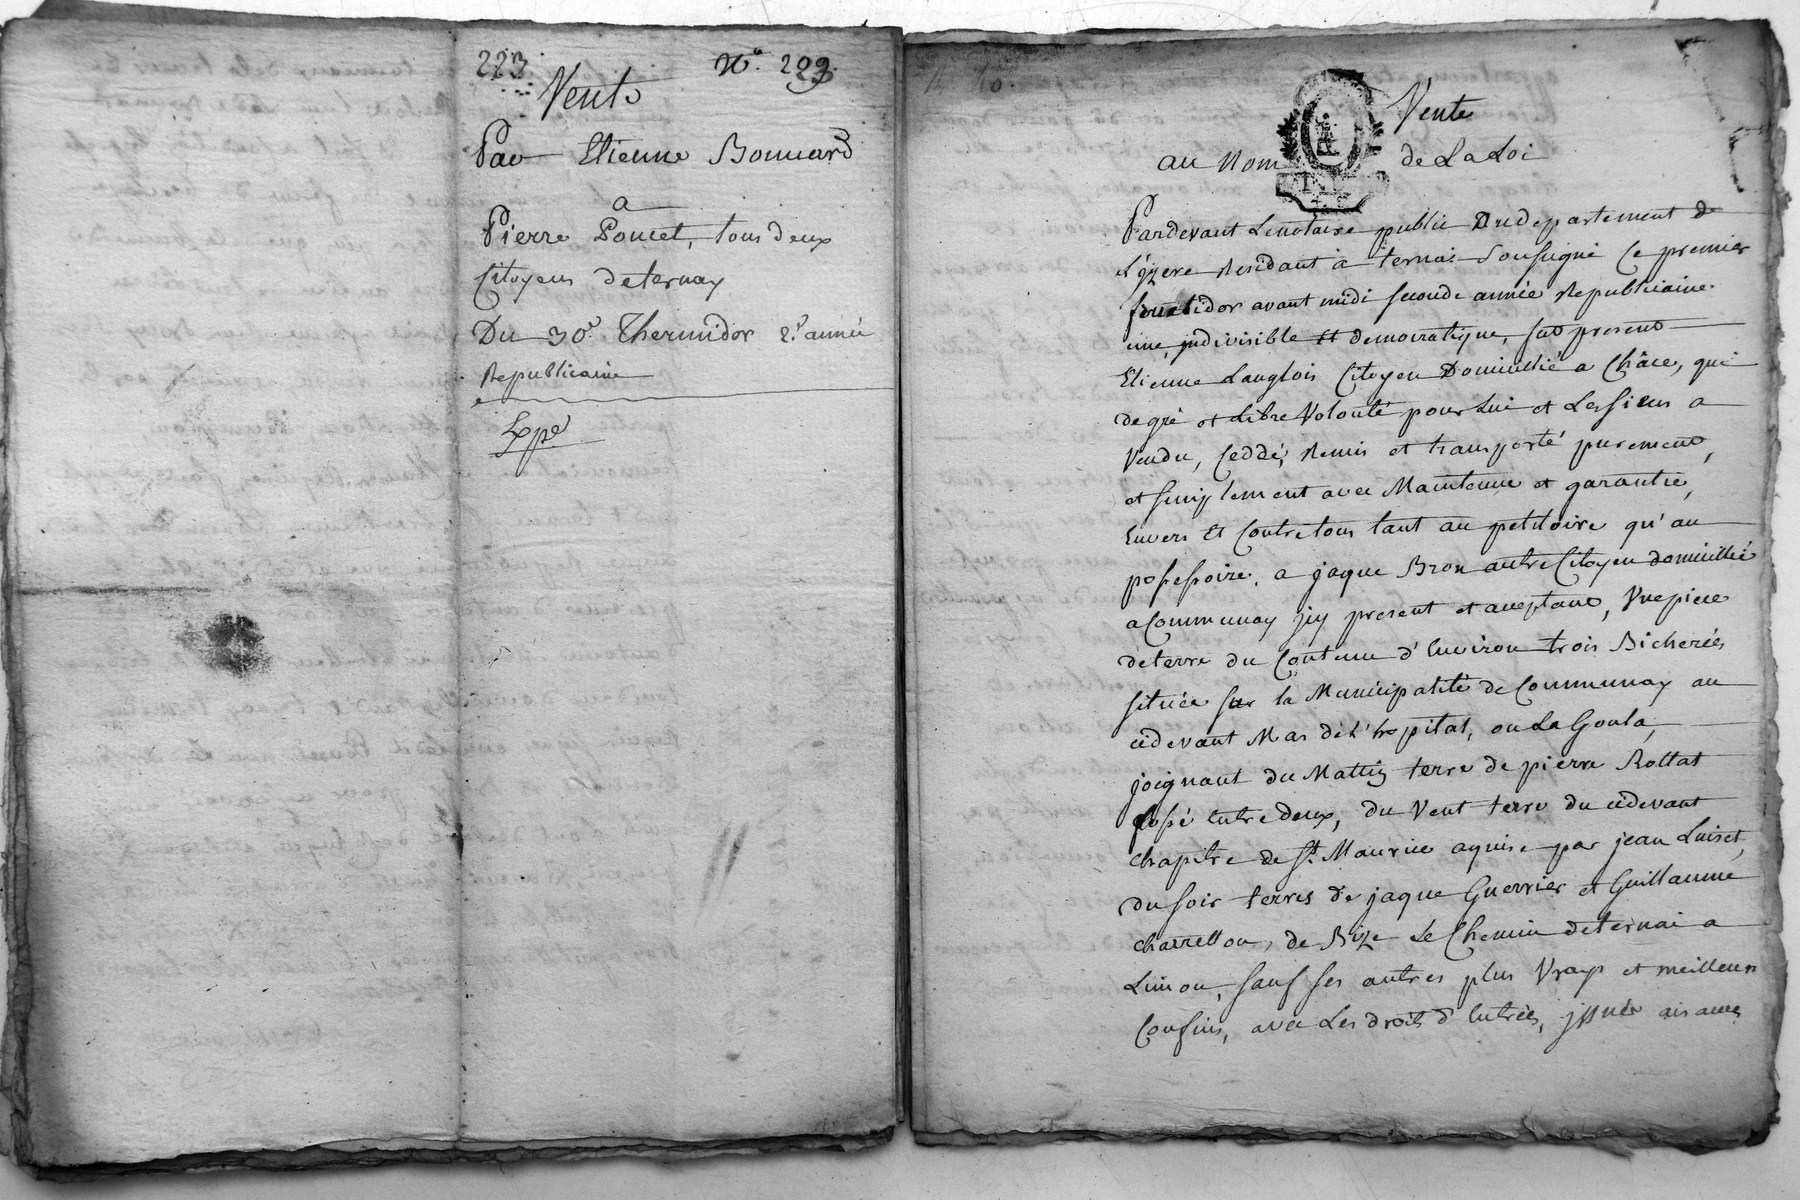 223 N°. 223
Vente
Par Etienne Bonnard
a
Pierre Poncet, tous deux
Citoyens deternay
Du 30e. Thermidor 2e. année
Republicaine
Expé
Vente
au Nom de La Loi
Pardevant Lenotaire public Dudepartement de
L'izere Residant a ternai Soussigné Ce premier
fructidor avant midi seconde année Republicaine
une, indivisible Et democratique, fut present
Etienne Langlois Citoyen Domicillié a Châce, qui
degré et Libre Volonté pour Lui et Lessiens a
Vendu, Ceddé, Remis et transporté purement,
et simplement avec Maintenue et garantie,
Envers Et Contretous tant au petitoire qu'au
possessoire, a jaque Bron autre Citoyen domicillié
a Communay jcy present et acceptant, Vnepiece
deterre du Contenu d'Environ trois Bicherées
située sur la Municipalité de Communay au
cidevant Mas de L'hopital, ou La Goula,
joignant du Mattin terre de pierre Rottat
fossé Entre deux, du Vent terre du cidevant
chapitre de St. Maurice aquise par jean Luiset,
du soir terres de jaque Guerrier et Guillaume
charretton, de Bize Le Chemin deternai a
Limon, sauf ses autres plus Vrays et meilleurs
Confins, avec Les droits d'Entrées, jssues aisances